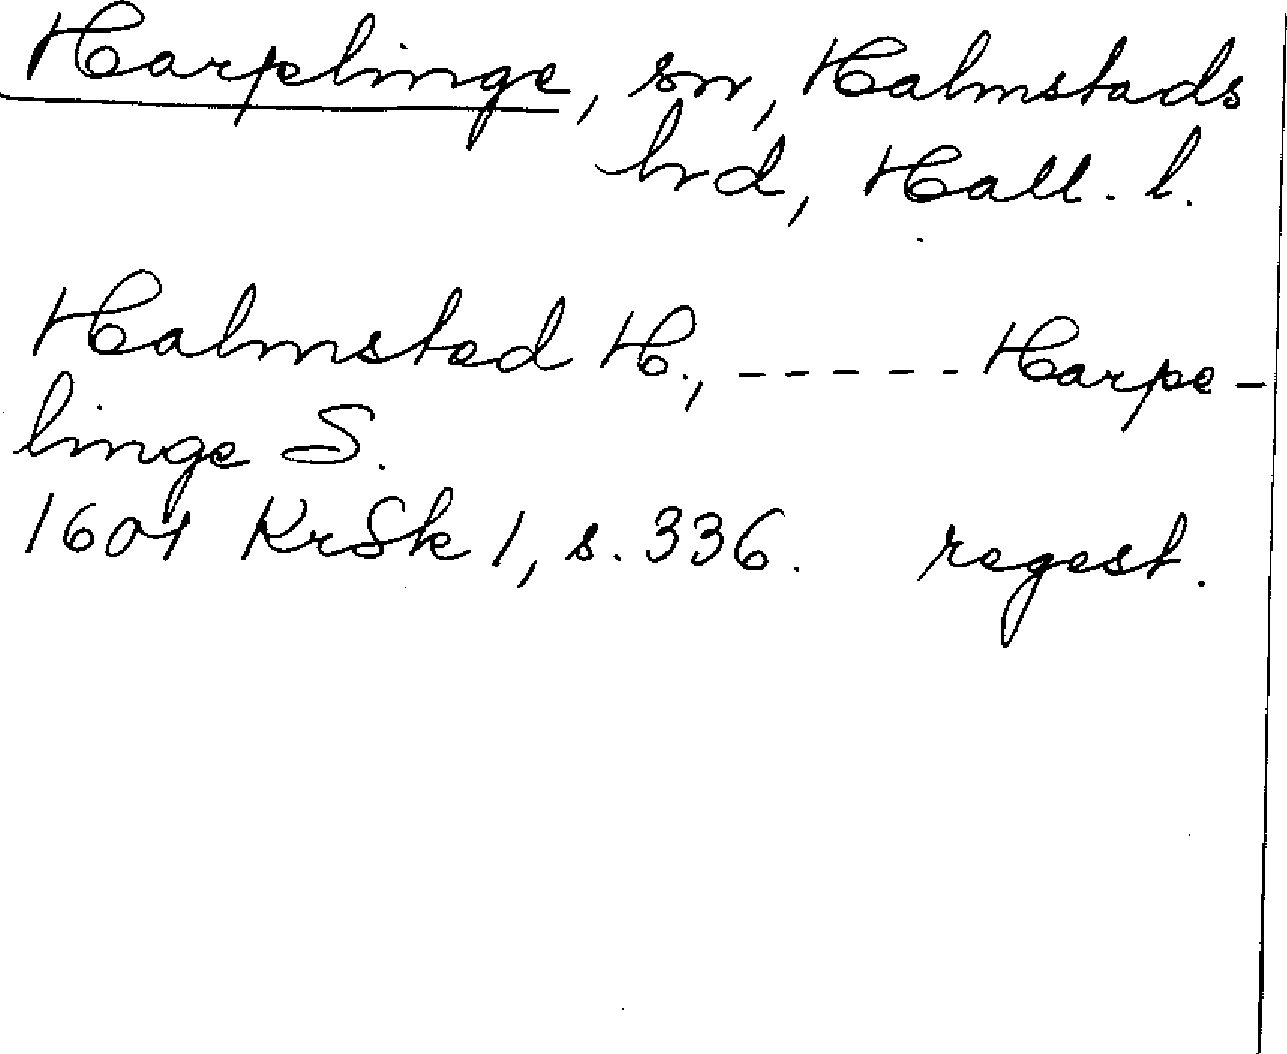 Harplinge, sn, Halmstads
hrd, Hall. l.
Halmstad H., ----- Harpe-
linge S.
1601 KrSk 1, s. 336. regest.